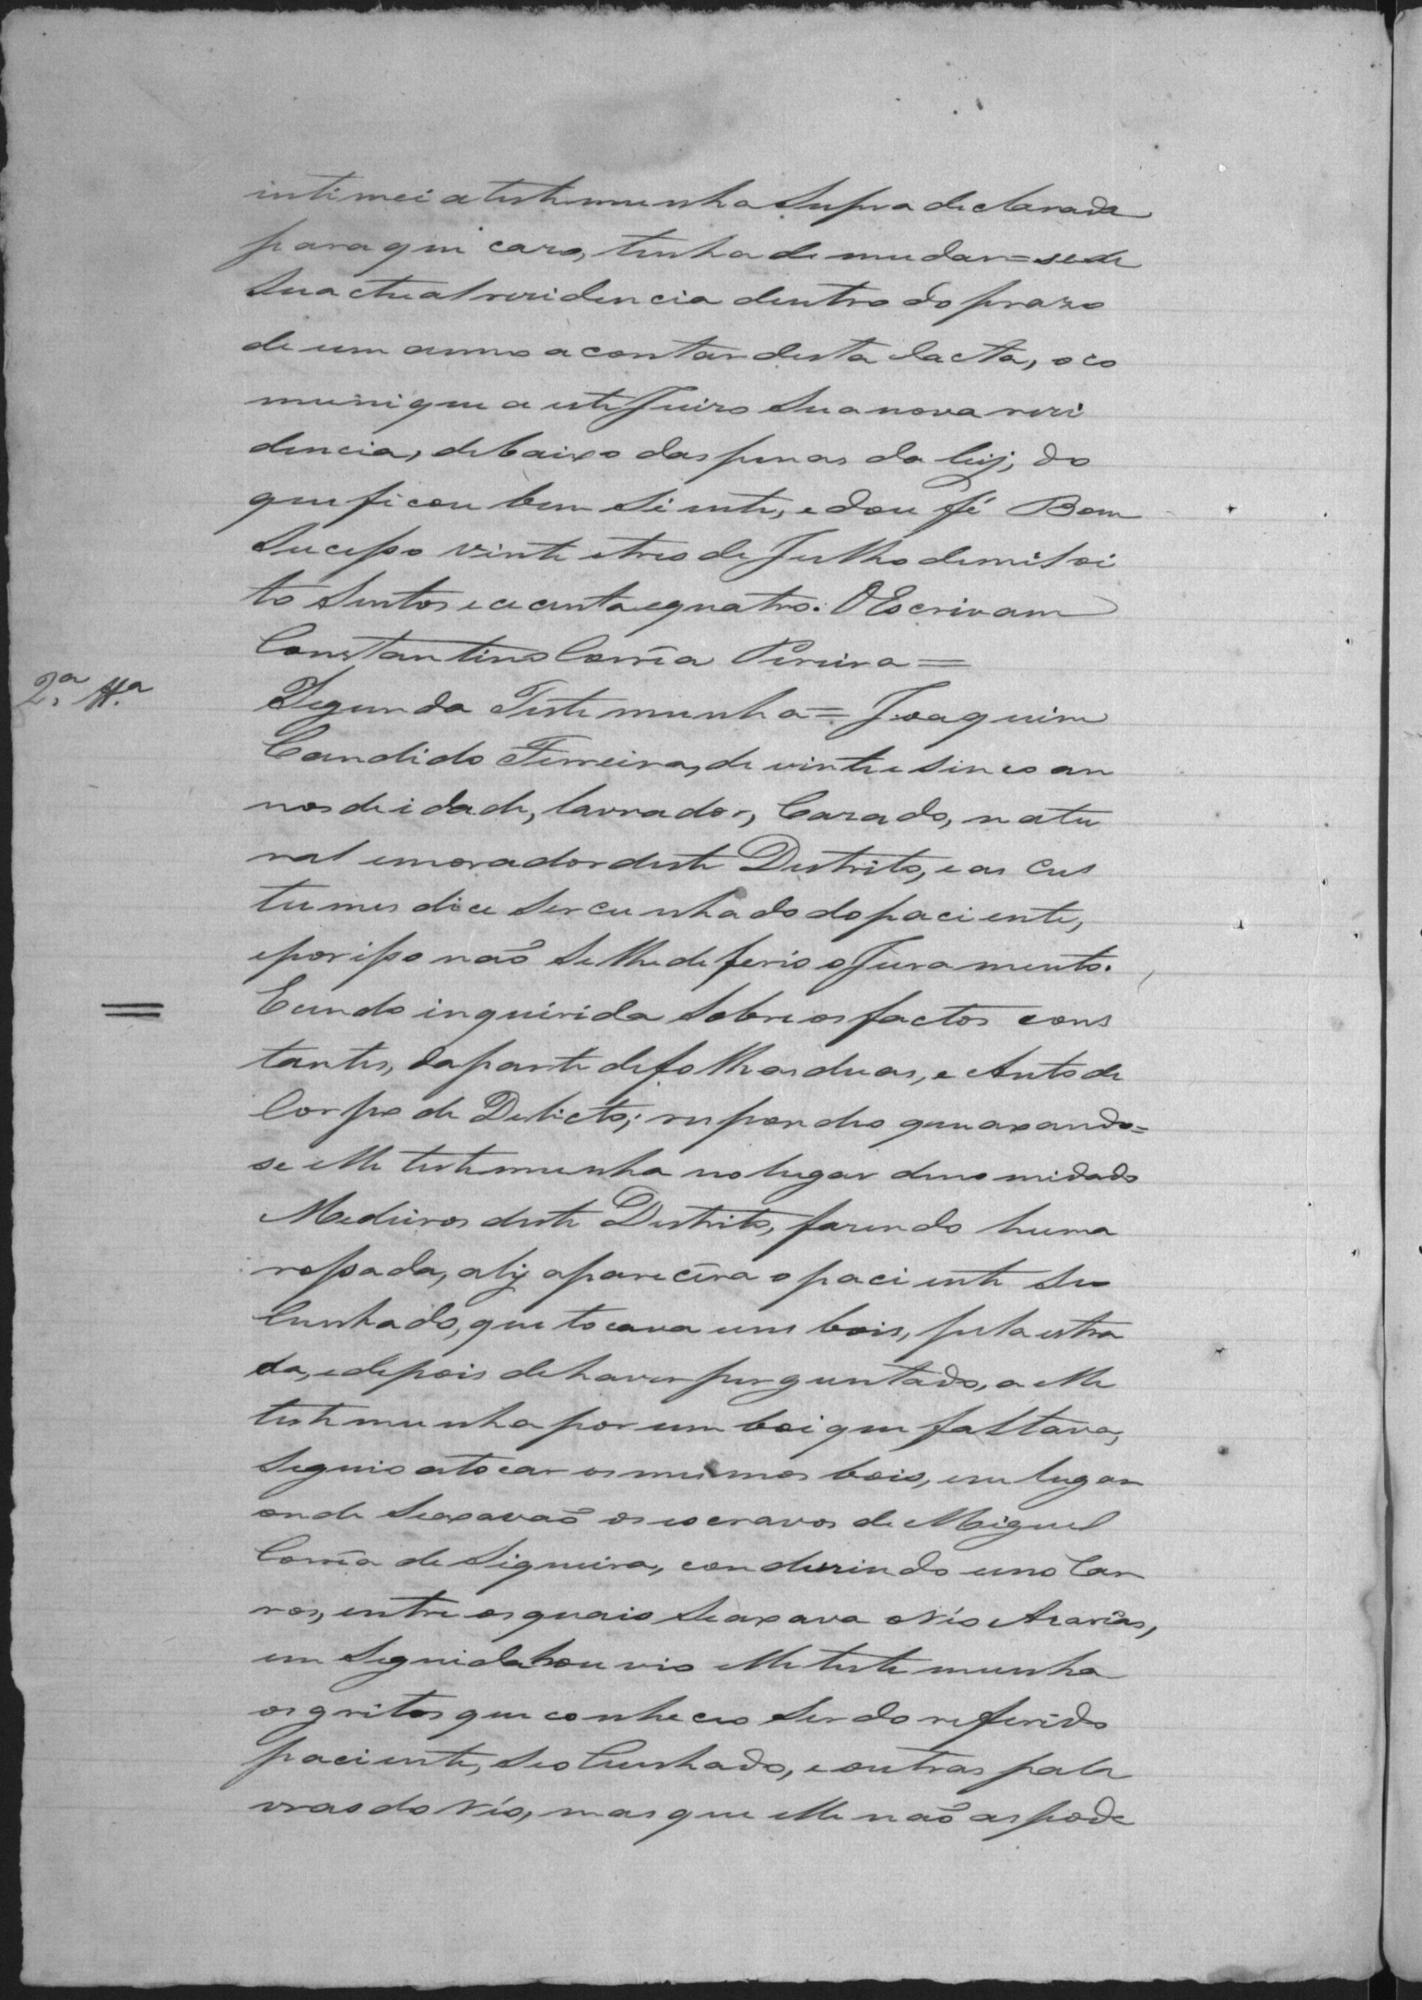 intimei a testemunha supra declarada
para que caso, tenha de mudar=se de
sua ctual rezidencia dentro do prazo
de um anno a contar desta dacta, o co
munique a este Juizo sua nova rezi
dencia, debaixo das penas da leij; do
que ficou bem siente, e dou fé Bom
Sucesso vinte e tres de Julho de mil oi
to sentos e cecenta e quatro. O Escrivam
Constantino Corrêa Pereira =
2.ª tt.ª
Segunda Testemunha = Joaquim
Candido Ferreira, de vinte e sinco an
nos de idade, lavrador, Cazado, natu
ral e morador deste Destrito, e aos cus
tumes dice ser cunhado do paciente,
e por isso naõ se lhe deferio o Juramento.
E cendo inquirida sobre os factos cons
tantes, da parte de folhas duas, e Auto de
Corpo de Delicto; respondeo que axando=
se elle testemunha no lugar denomidado
Medeiros deste Destrito, fazendo huma
rossada, alij aparecêra o paciente seo
Cunhado, que tocava uns bois, pela estra
da, e depois de haver perguntado, a elle
testemunha por um boi que faltava,
seguio a tocar os mesmos bois, em lugar
onde se axavaõ os escravos de Miguel
Corrêa de Siqueira, conduzindo uns Car
ros, entre os quais se axava o Réo Azarias,
em seguida houvio elle testemunha
os gritos que conheceo ser do referido
paciente, seo Cunhado, e outras pala
vras do réo, mas que elle naõ as pode